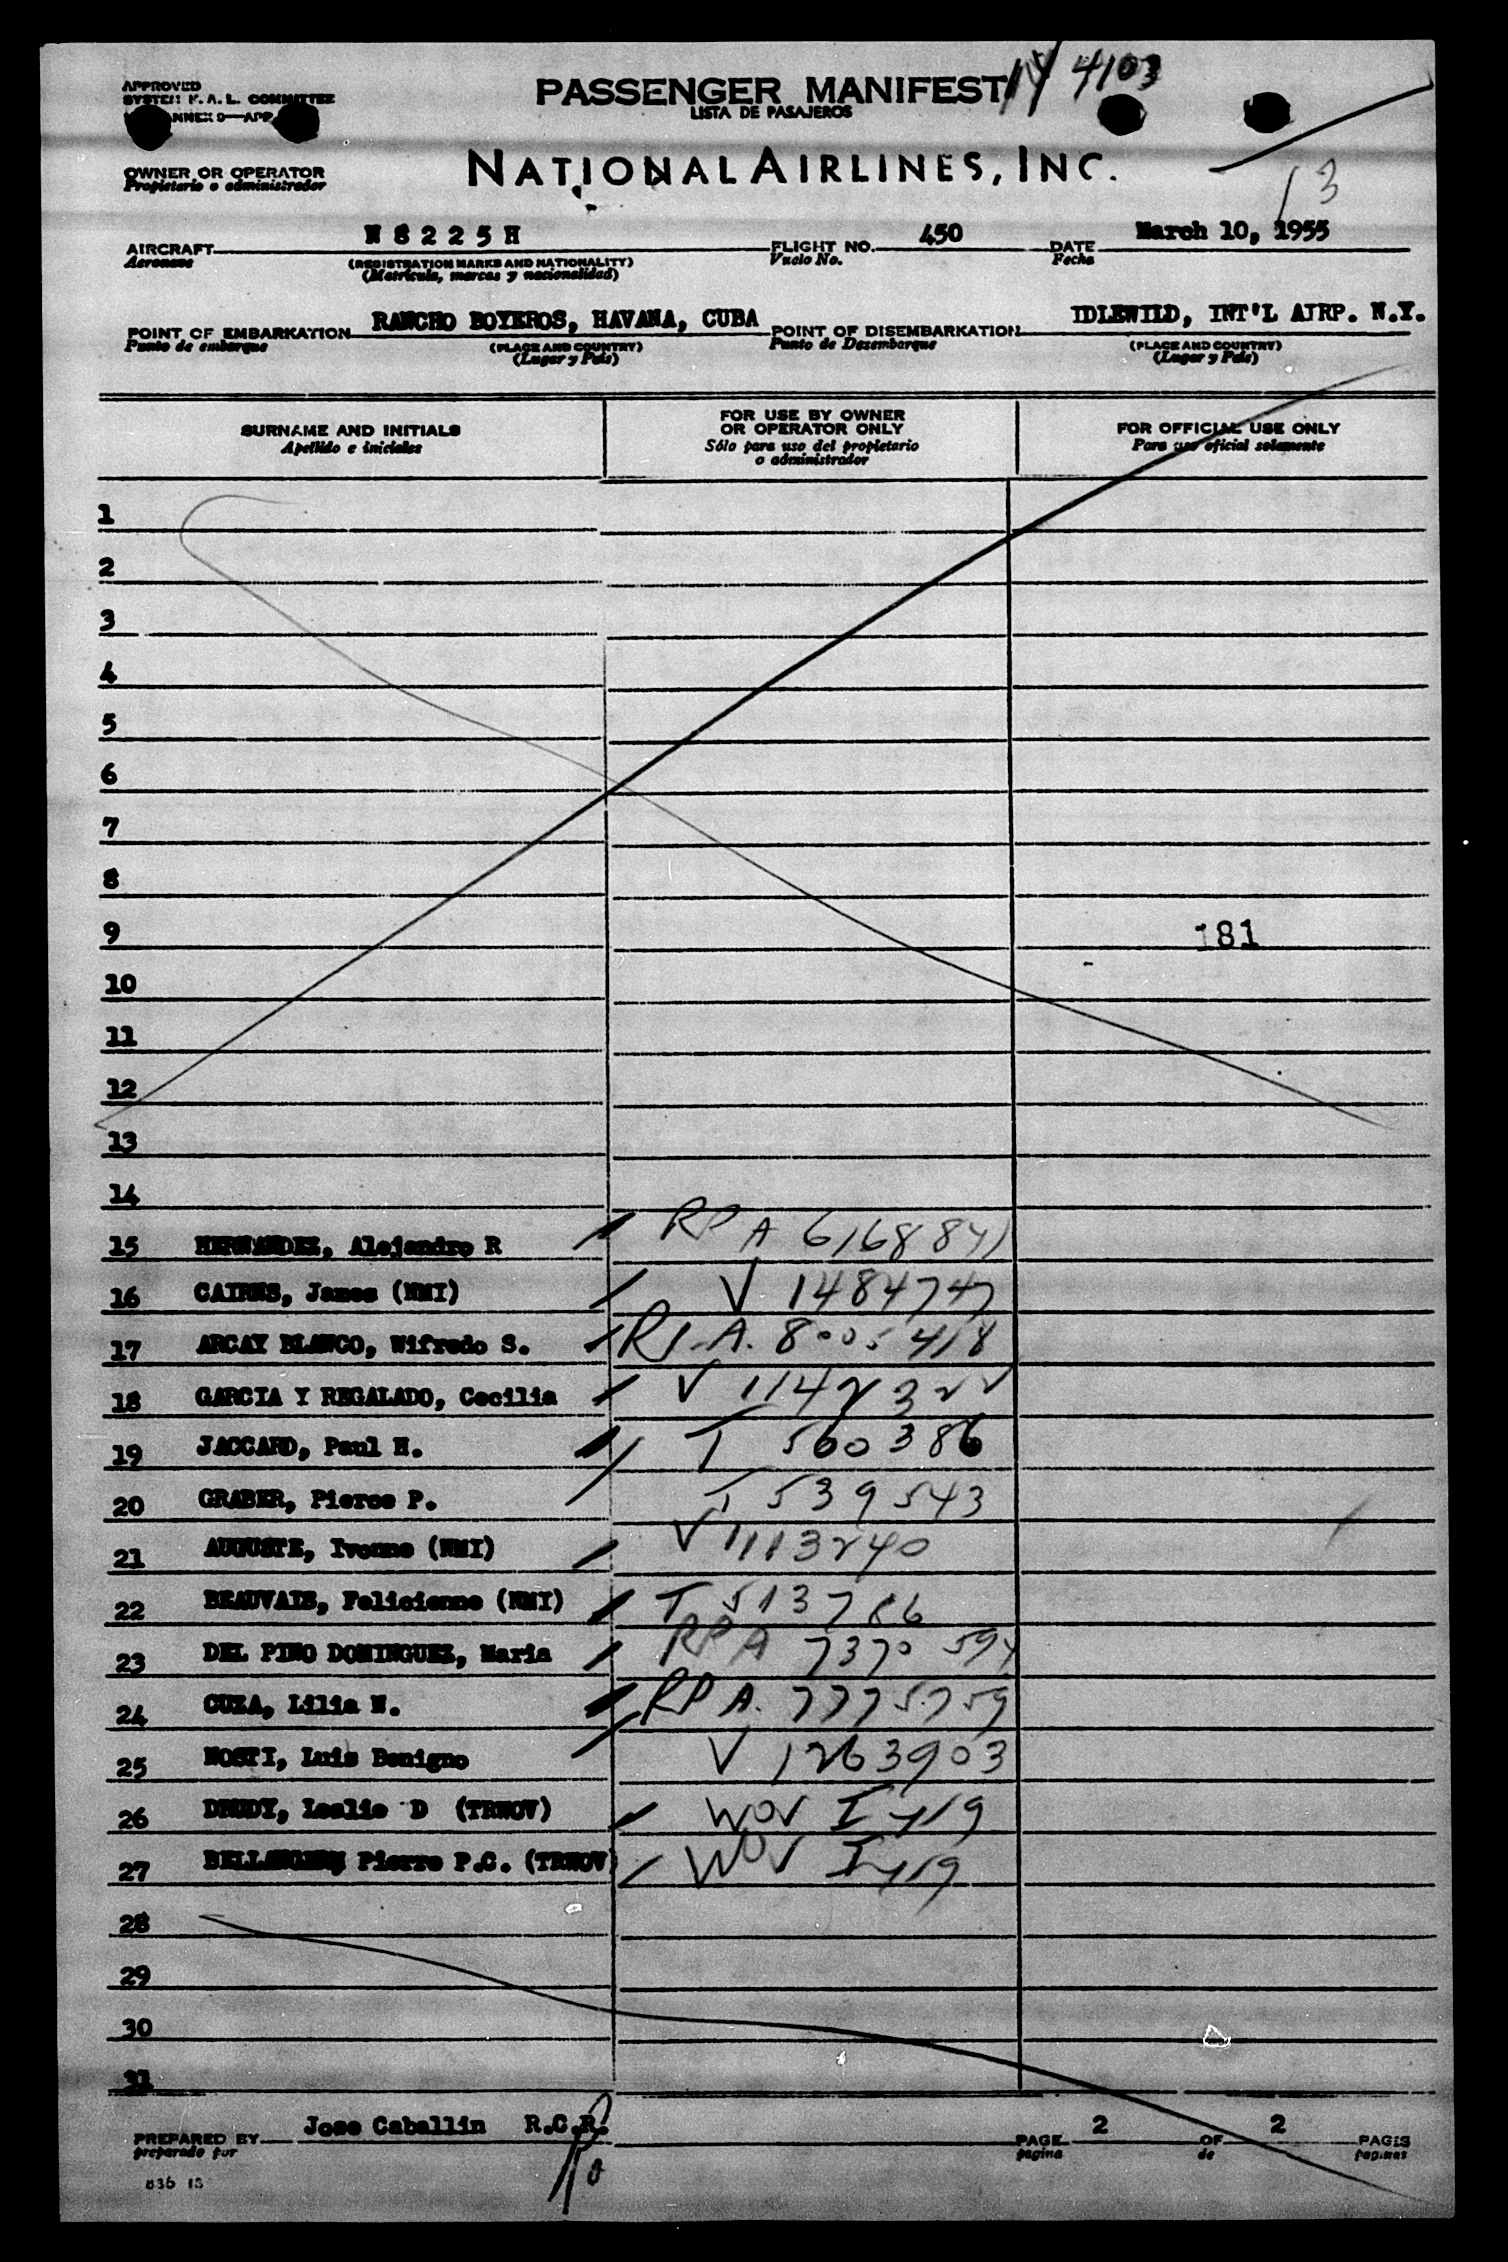 APPROVED
SYSTEM F. A. L. COMMITTEE
ANNEX 9—APP.
PASSENGER MANIFEST
LISTA DE PASAJEROS
4103
13
OWNER OR OPERATOR
Propietario o administrador
NATIONAL AIRLINES, INC.
AIRCRAFT N 8 2 2 5 H FLIGHT NO. 450 DATE March 10, 1955
Aeronave (REGISTRATION MARKS AND NATIONALITY) Vuelo No. Fecha
(Matrícula, marcas y nacionalidad)
POINT OF EMBARKATION RANCHO BOYEROS, HAVANA, CUBA POINT OF DISEMBARKATION IDLEWILD, INT'L AIRP. N.Y.
Punto de embarque (PLACE AND COUNTRY) Punto de Desembarque (PLACE AND COUNTRY)
(Lugar y País) (Lugar y País)
SURNAME AND INITIALS FOR USE BY OWNER OR OPERATOR ONLY FOR OFFICIAL USE ONLY
Apellido e iniciales Sólo para uso del propietario o administrador Para uso oficial solamente
1
2
3
4
5
6
7
8
9 181
10
11
12
13
14
15 HERNANDEZ, Alejandro R RP A 6168841
16 CAIRNS, James (NMI) V 1484747
17 ARCAY BLANCO, Wifredo S. A. 8005418
18 GARCIA Y REGALADO, Cecilia V 1142322
19 JACCARD, Paul H. T 560386
20 GRABER, Pierce P. T 539543
21 AUGUSTE, Ivonne (NMI) V 1113240
22 BEAUVAIS, Felicienne (NMI) T 513786
23 DEL PINO DOMINGUEZ, Maria RP A 7370594
24 CUZA, Lilia N. RP A. 7775759
25 NOSTI, Luis Benigno V 1263903
26 DRUDY, Leslie D (TRWOV) WOV I 419
27 Pierre P.C. (TRWOV) WOV I 419
28
29
30
31
PREPARED BY Jose Caballin R.C.R. PAGE 2 OF 2 PAGES
preparado por pagina de paginas